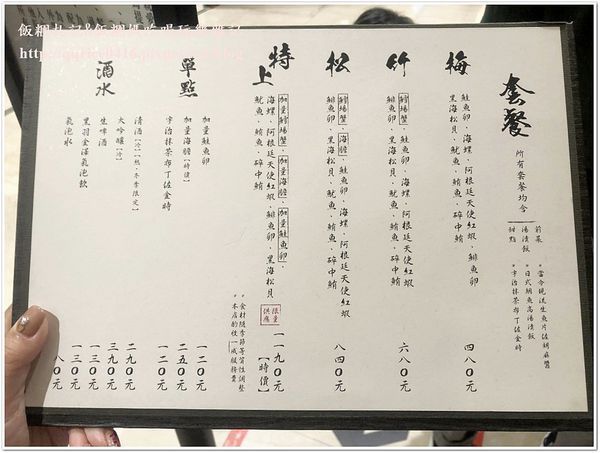 套餐
所有套餐均含
前菜・當令現流生魚片佐胡麻醬
湯漬飯・日式鯛魚高湯漬飯
甜點・宇治抹茶布丁佐金時
梅
鮭魚卵・海螺・阿根廷天使紅蝦・鯡魚卵・
黑海松貝・魷魚・鮪魚・碎中鮪
四八〇元
竹
鱈場蟹・鮭魚卵・海螺・阿根廷天使紅蝦・
鯡魚卵・黑海松貝・魷魚・鮪魚・碎中鮪
六八〇元
松
鱈場蟹・海膽・鮭魚卵・海螺・阿根廷天使紅蝦・
鯡魚卵・黑海松貝・魷魚・鮪魚・碎中鮪
八四〇元
特上
加量鱈場蟹・加量海膽・加量鮭魚卵・
海螺・阿根廷天使紅蝦・鯡魚卵・黑海松貝・
魷魚・鮪魚・碎中鮪
限量供應
一一九〇元
【時價】
*食材隨季節等質性調整
*本店酌收一成服務費
單點
加量鮭魚卵
一二〇元
加量海膽【時價】
二五〇元
宇治抹茶布丁佐金時
一二〇元
酒水
清酒【冷】【熱・冬季限定】
二九〇元
大吟釀【冷】
三九〇元
生啤酒
一三〇元
黑羽金澤氣泡飲
一三〇元
氣泡水
八〇元